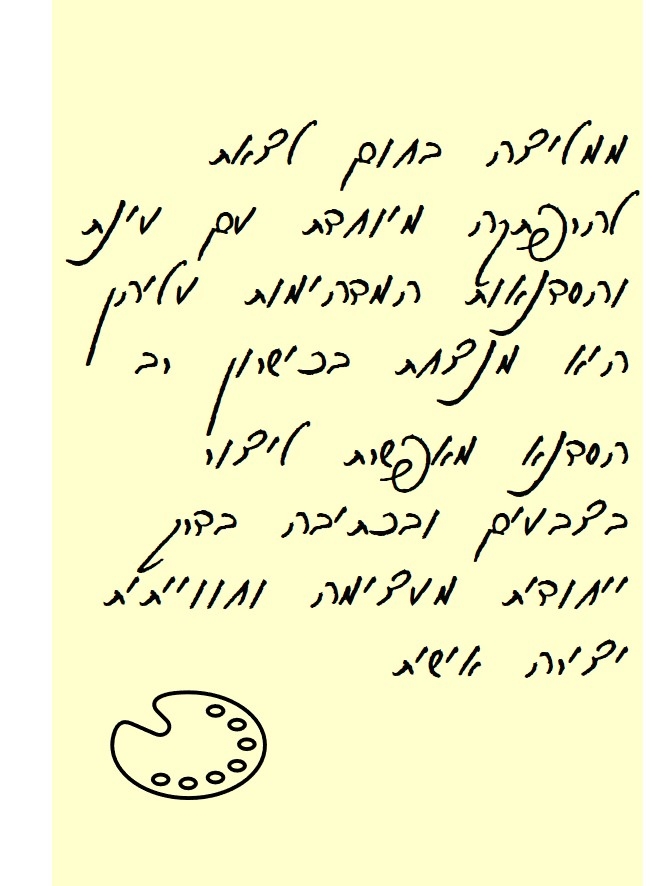 ממליצה בחום לצאת
להרפתקה מיוחדת עם עינת
והסדנאות המדהימות עליהן
היא מנצחת בכישרון רב
הסדנא מאפשרת ליצור
בצבעים ובכתיבה בדרך
ייחודית מעצימה וחווייתית
יצירה אישית